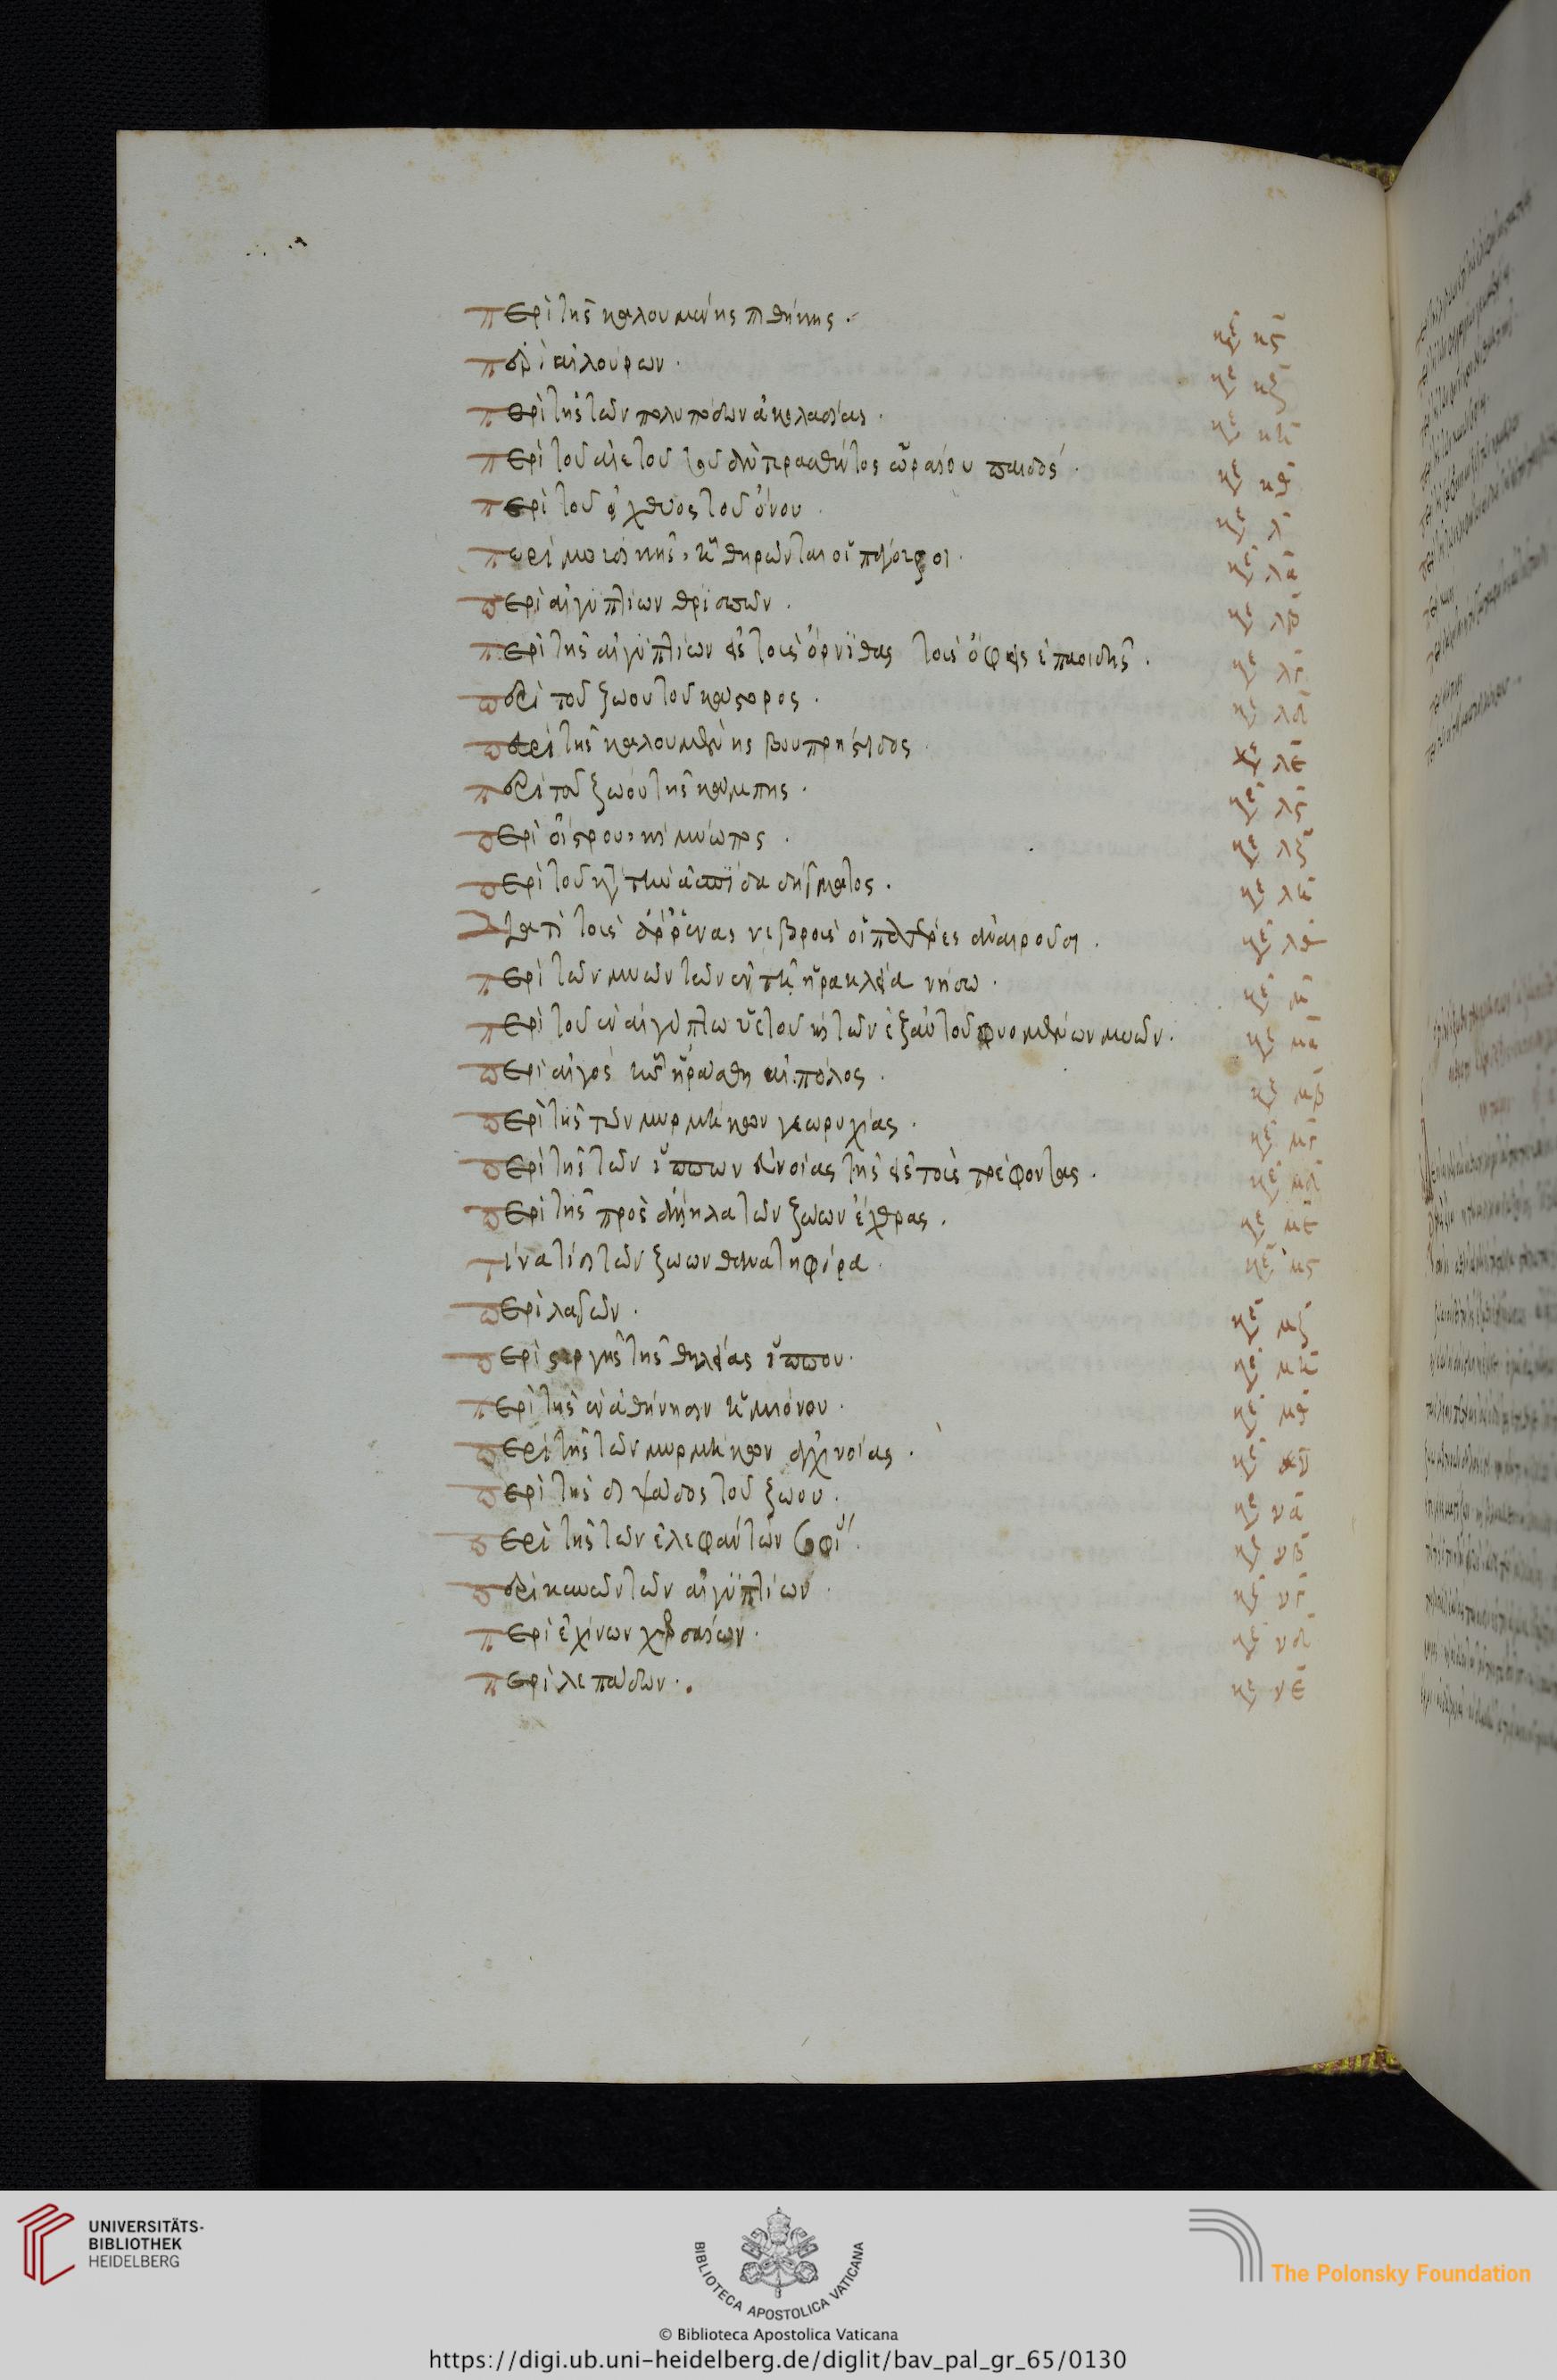 περὶ τῆς καλουμένης τιθήνης. κε κϛ
περὶ αἰλούρων. κε κζ
περὶ τῆς τῶν πολυπόδων ἀκολασίας. κε κη
περὶ τοῦ ἀετοῦ τοῦ ὡραίου παιδός. κε κθ
περὶ τοῦ ἰχθύος τοῦ ὄνου. κε λ
περὶ ᾗ θηρῶνται οἱ κε λα
περὶ αἰγυπτίων θρισσῶν. κε λβ
περὶ τῆς αἰγυπτίων εἰς τοὺς ὄρνιθας τοὺς ὄφεις ἐπαοιδῆς. κε λγ
περὶ τοῦ ζώου τοῦ κάστορος. κε λδ
περὶ τῆς καλουμένης βουπρήστιδος. κε λε
περὶ τοῦ ζώου τῆς κάμπης. κε λϛ
περὶ οἴστρου, καὶ μύωπος. κε λζ
περὶ τοῦ κατὰ τὴν ἀσπίδα δήγματος. κε λη
διατί τοὺς ἄρρενας νεβροὺς οἱ πατέρες ἀναιροῦσι. κε λθ
περὶ τῶν μυῶν τῶν ἐν τῇ ἡρακλείᾳ νήσω. κε μ
περὶ τοῦ ἐν αἰγύπτω ὑετοῦ καὶ τῶν ἐξ αὐτοῦ φυομένων μυῶν. κε μα
περὶ αἰγὸς ἧς ἠράσθη αἰπόλος. κε μβ
περὶ τῆς τῶν μυρμήκων γεωρυχίας. κε μγ
περὶ τῆς τῶν ἵππων εὐνοίας τῆς εἰς τοὺς τρέφοντας. κε μδ
περὶ τῆς πρὸς ἄλληλα τῶν ζώων ἔχθρας. κε με
τίνα τίσι τῶν ζώων θανατηφόρα. κε μϛ
περὶ λαγῶν. κε μζ
περὶ στοργῆς τῆς θηλείας ἵππου. κε μη
περὶ τῆς ἐν ἀθήνησιν ἡμιόνου. κε μθ
περὶ τῆς τῶν μυρμήκων ἀγχινοίας. κε ν
περὶ τῆς διψάδος τοῦ ζώου. κε να
περὶ τῆς τῶν ἐλεφάντων κε νβ
περὶ κυνῶν τῶν αἰγυπτίων κε νγ
περὶ ἐχίνων χερσαίων. κε νδ
περὶ λεπάδων. κε νε
UNIVERSITÄTS-
BIBLIOTHEK
HEIDELBERG
BIBLIOTECA APOSTOLICA VATICANA
The Polonsky Foundation
© Biblioteca Apostolica Vaticana
https://digi.ub.uni-heidelberg.de/diglit/bav_pal_gr_65/0130